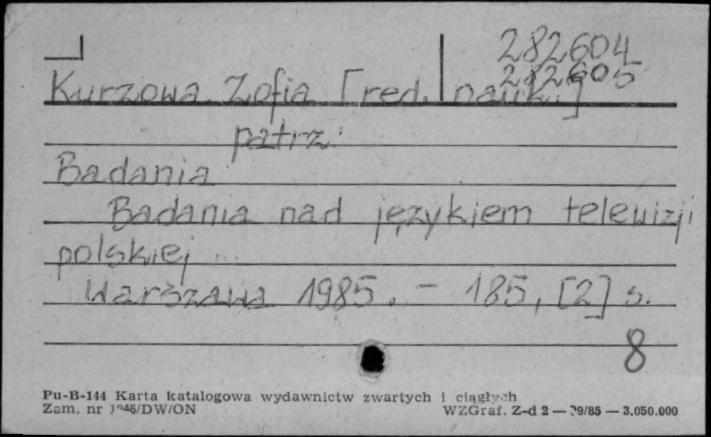 282604
282605
Kurzowa Zofia [red. nauk.]
patrz:
Badania
Badania nad językiem telewizji
polskiej
Warszawa 1985. - 185, [2] s.
8
Pu-B-144 Karta katalogowa wydawnictw zwartych i ciągłych
Zam. nr /DW/ON WZGraf. Z-d 2 — /85 — 3.050.000